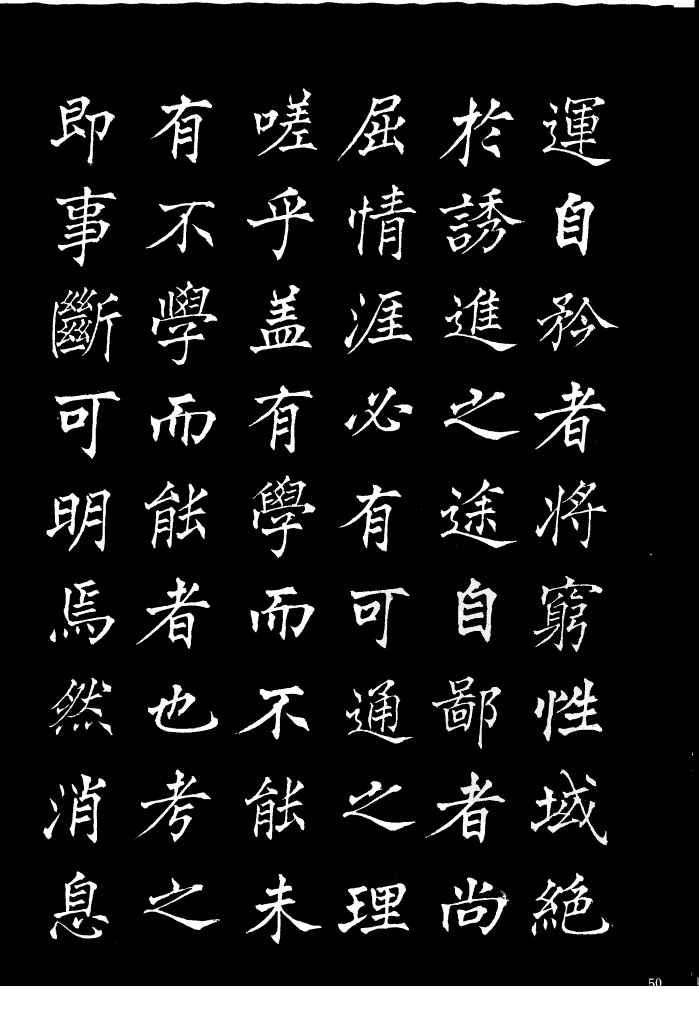 運自矜者將窮性域絕
於誘進之途自鄙者尚
屈情涯必有可通之理
嗟乎盖有學而不能未
有不學而能者也考之
即事斷可明焉然消息
50